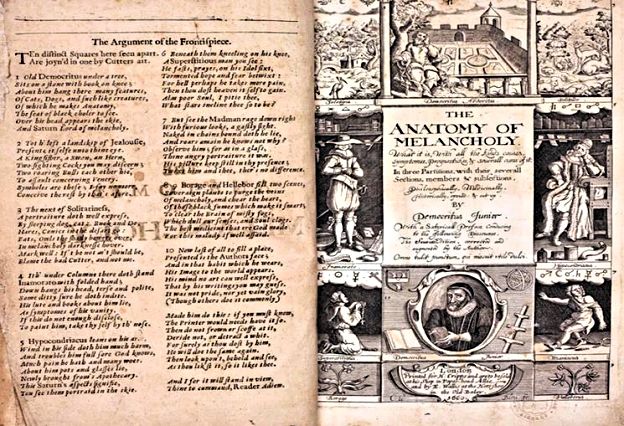 The Argument of the Frontispiece.
TEn distinct Squares here seen apart,
Are joyn'd in one by Cutters art.
1 Old Democritus under a tree,
Sits on a stone with book on knee;
About him hang there many features,
Of Cats, Dogs, and such like creatures,
Of which he makes Anatomy,
The seat of black choler to see.
Over his head appears the skie,
And Saturn Lord of melancholy.
2 To th' left a landskip of Jealousie,
Presents it self unto thine eye.
A Kingfisher, a Swan, an Hern,
Two fighting Cocks you may discern,
Two roaring Bulls each other hie,
To assault concerning Venery.
Symboles are these; I say no more,
Conceive the rest by that's afore.
3 The next of Solitariness,
A portraiture doth well express,
By sleeping dog, cat: Buck and Doe,
Hares, Conies in the desart go:
Bats, Owls the shady bowers over,
In melancholy darkness hover.
Mark well: If't be not as't should be,
Blame the bad Cutter, and not me.
4 Ith' under Columne there doth stand
Inamorato with folded hand;
Down hangs his head, terse and polite,
Some ditty sure he doth indite.
His lute and books about him lie,
As symptomes of his vanity.
If this do not enough disclose,
To paint him, take thy self by th' nose.
5 Hypocondriacus leans on his arm,
Wind in his side doth him much harm,
And troubles him full sore God knows,
Much pain he hath and many woes.
About him pots and glasses lie,
Newly brought from's Apothecary.
This Saturn's aspects signifie,
You see them portraid in the skie.
6 Beneath them kneeling on his knee,
A Superstitious man you see:
He fasts, prayes, on his Idol fixt,
Tormented hope and fear betwixt:
For hell perhaps he takes more pain,
Then thou dost heaven it self to gain.
Alas poor Soul, I pitie thee,
What stars incline thee so to be?
7 But see the Madman rage down right
With furious looks, a gastly sight.
Naked in chains bound doth he lie,
And roars amain he knows not why!
Observe him; for as in a glass,
Thine angry portraiture it was.
His picture keep still in thy presence;
Twixt him and thee, ther's no difference.
8 9 Borage and Hellebor fill two scenes,
Soveraign plants to purge the veins
Of melancholy, and chear the heart,
Of those black fumes which make it smart;
To clear the Brain of misty fogs,
Which dull our senses, and Soul clogs.
The best medicine that ere God made
For this malady, if well assaid.
10 Now last of all to fill a place,
Presented is the Authors face;
And in that habit which he wears,
His Image to the world appears.
His mind no art can well express,
That by his writings you may guess.
It was not pride, nor yet vain glory,
(Though others doe it commonly)
Made him do this: if you must know,
The Printer would needs have it so.
Then do not frown or scoffe at it,
Deride not, or detract a whit.
For surely as thou dost by him,
He will do the same again.
Then look upon't, behold and see,
As thou lik'st it, so it likes thee.
And I for it will stand in view,
Thine to command, Reader Adiew.
Democritus Abderites
THE
ANATOMY OF
MELANCHOLY
What it is, With all the kinds causes,
symptomes, prognostickes & severall cures of it.
In three Partitions, with their severall
Sections, members & subsections,
Philosophically, Medicinally,
Historically, opened & cut up
BY
Democritus Junior
With a Satyricall Preface Conducing
to the following Discourse
corrected and
by the Author
Omne tulit punctum, qui miscuit utile dulci.
Inamorato
Democritus Junior
Maniacus
London
Printed for H. Cripps
Borago